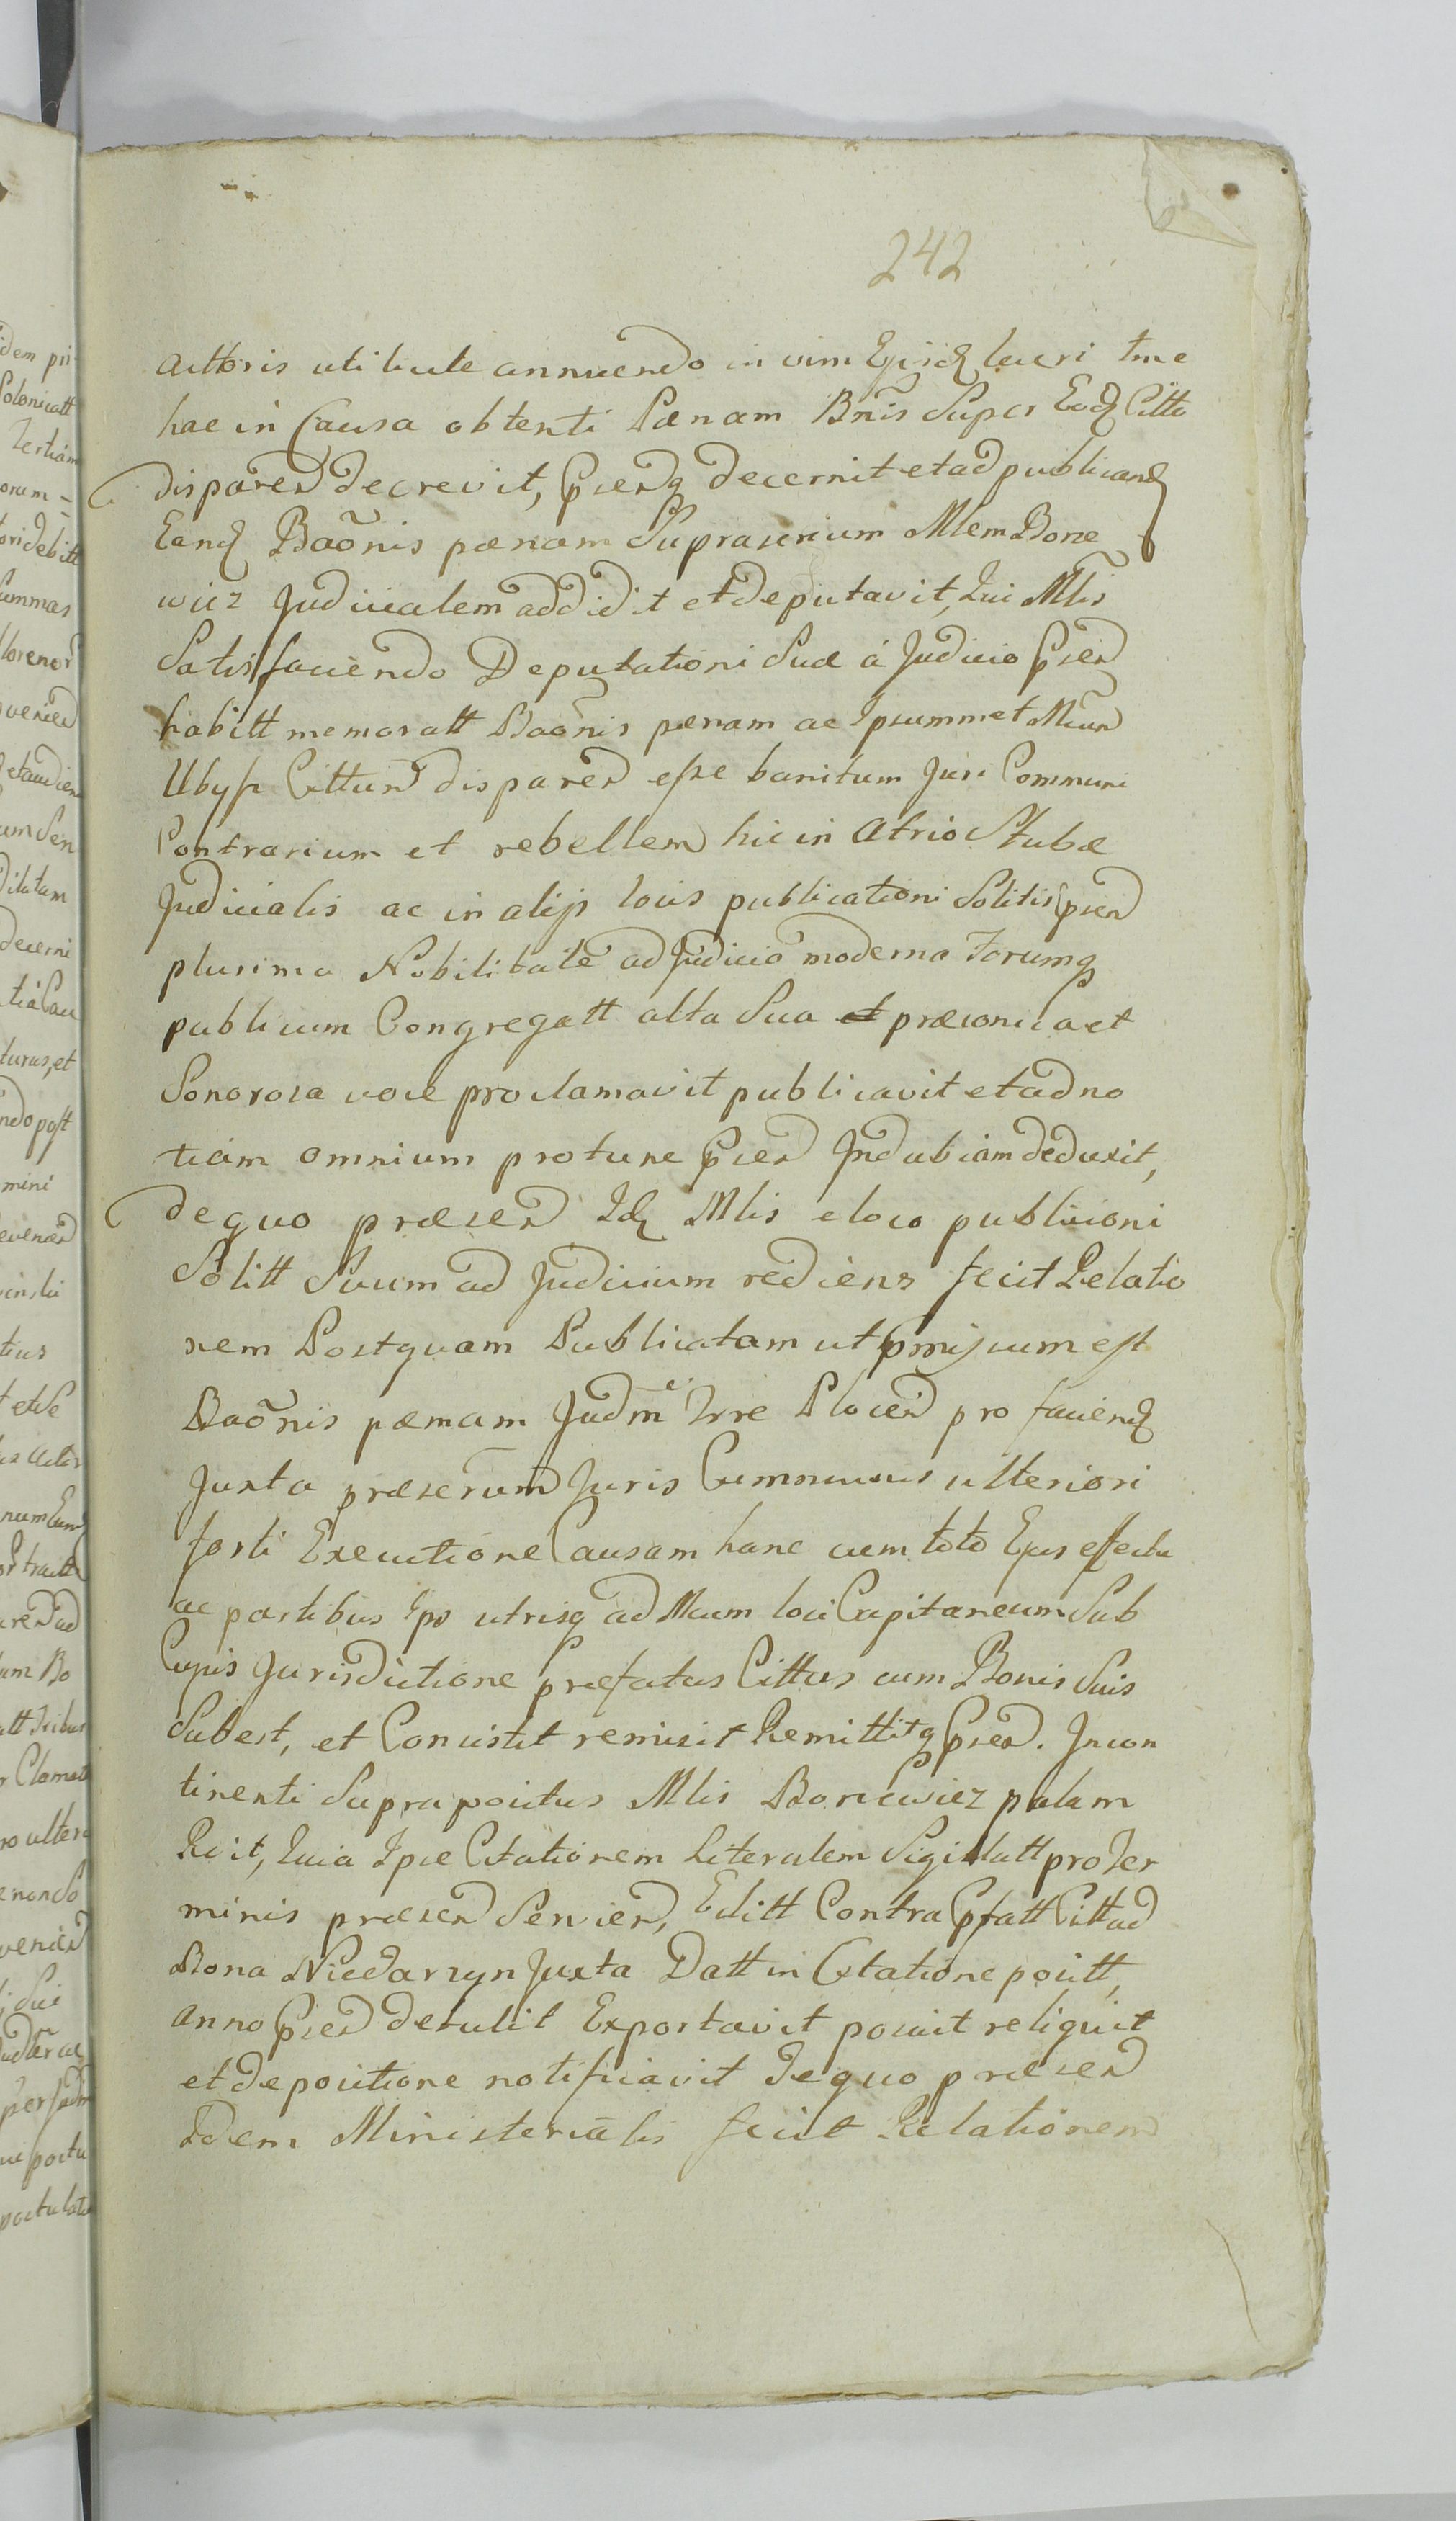 242
Actoris uti tute annuendo in vim Ejusd lucri tme
hac in Causa obtenti Pœnam Bnis Super Eod Citto
disparen decrevit, psensq decernit et ad publicand
Eand Baõnis pœnam Suprascrium Mlem Bone
wicz Judicialem addidit et deputavit, Qui Mlis
Satisfaciendo Deputationi Suæ á Judicio psen
habitt memoratt Baõnis pœnam ac Ipsummet
Cittum disparen esse banitum Juri Communi
Contrarium et rebellem hic in Atrio Stubæ
Judicialis ac in alijs locis publicationi Solitis psen
plurima Nobilitate ad Judicia moderna Forumq
publicum Congregatt alta Sua et præconica et
Sonorosa voce proclamavit publicavit et ad no
tiam omnium protunc psen Indubiam deduxit,
de quo præsen Id Mlis e loco publicioni
Solitt Suum ad Judicium rediens fecit Relatio
nem Postquam Publicatam ut pmissum est
Baõnis pœnam Judm Trre Plocen pro faciend
Juxta præscrium Juris Communis ulteriori
forti Executione Causam hanc cum toto Ejus effectu
ac partibus Ips utrisq ad Mcum loci Capitaneum Sub
Cujus Jurisdictione præfatus Cittus cum Bonis Suis
Subest, et Consistit remisit Remittitq psen. Incon
tinenti Suprapositus Mlis Bonewicz palam
Rcit, Quia Ipse Citationem Literalem Sigillatt pro Ter
minis præsen Servien, Editt Contra pfatt Citt ad
Bona Niedarzyn Juxta Datt in Citatione positt,
anno psen detulit Exportavit posuit reliquit
et de positione notificavit de quo præsen
Idem Ministerialis fecit Relationem